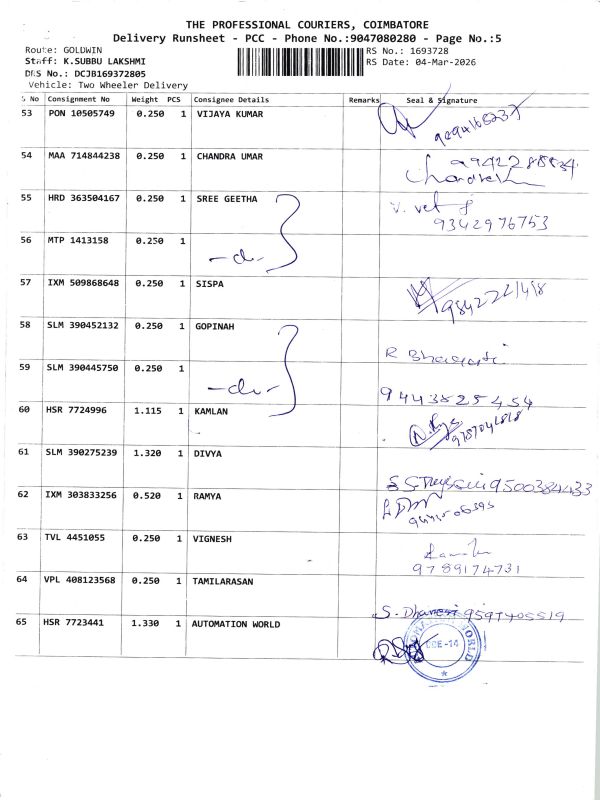 THE PROFESSIONAL COURIERS, COIMBATORE
Delivery Runsheet - PCC - Phone No.:9047080280 - Page No.:5
Route: GOLDWIN
RS No.: 1693728
Staff: K.SUBBU LAKSHMI
RS Date: 04-Mar-2026
DRS No.: DCJB169372805
Vehicle: Two Wheeler Delivery
S No Consignment No Weight PCS Consignee Details Remarks Seal & Signature
53 PON 10505749 0.250 1 VIJAYA KUMAR
54 MAA 714844238 0.250 1 CHANDRA UMAR
55 HRD 363504167 0.250 1 SREE GEETHA
9342976753
56 MTP 1413158 0.250 1
-do-
57 IXM 509868648 0.250 1 SISPA
58 SLM 390452132 0.250 1 GOPINAH
59 SLM 390445750 0.250 1
-do-
9443525454
60 HSR 7724996 1.115 1 KAMLAN
61 SLM 390275239 1.320 1 DIVYA
9500384433
62 IXM 303833256 0.520 1 RAMYA
63 TVL 4451055 0.250 1 VIGNESH
9789174731
64 VPL 408123568 0.250 1 TAMILARASAN
65 HSR 7723441 1.330 1 AUTOMATION WORLD